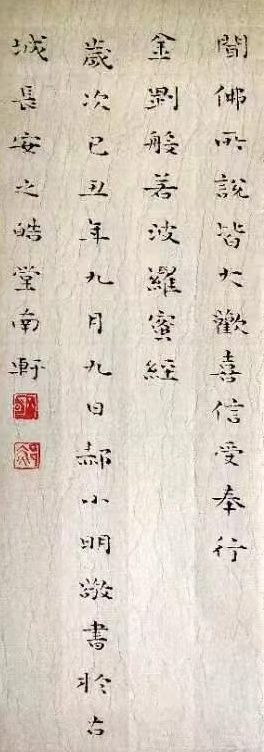 聞佛所說皆大歡喜信受奉行
金剛般若波羅蜜經
歲次己丑年九月九日郝小明敬書於古
城長安之皓堂南軒